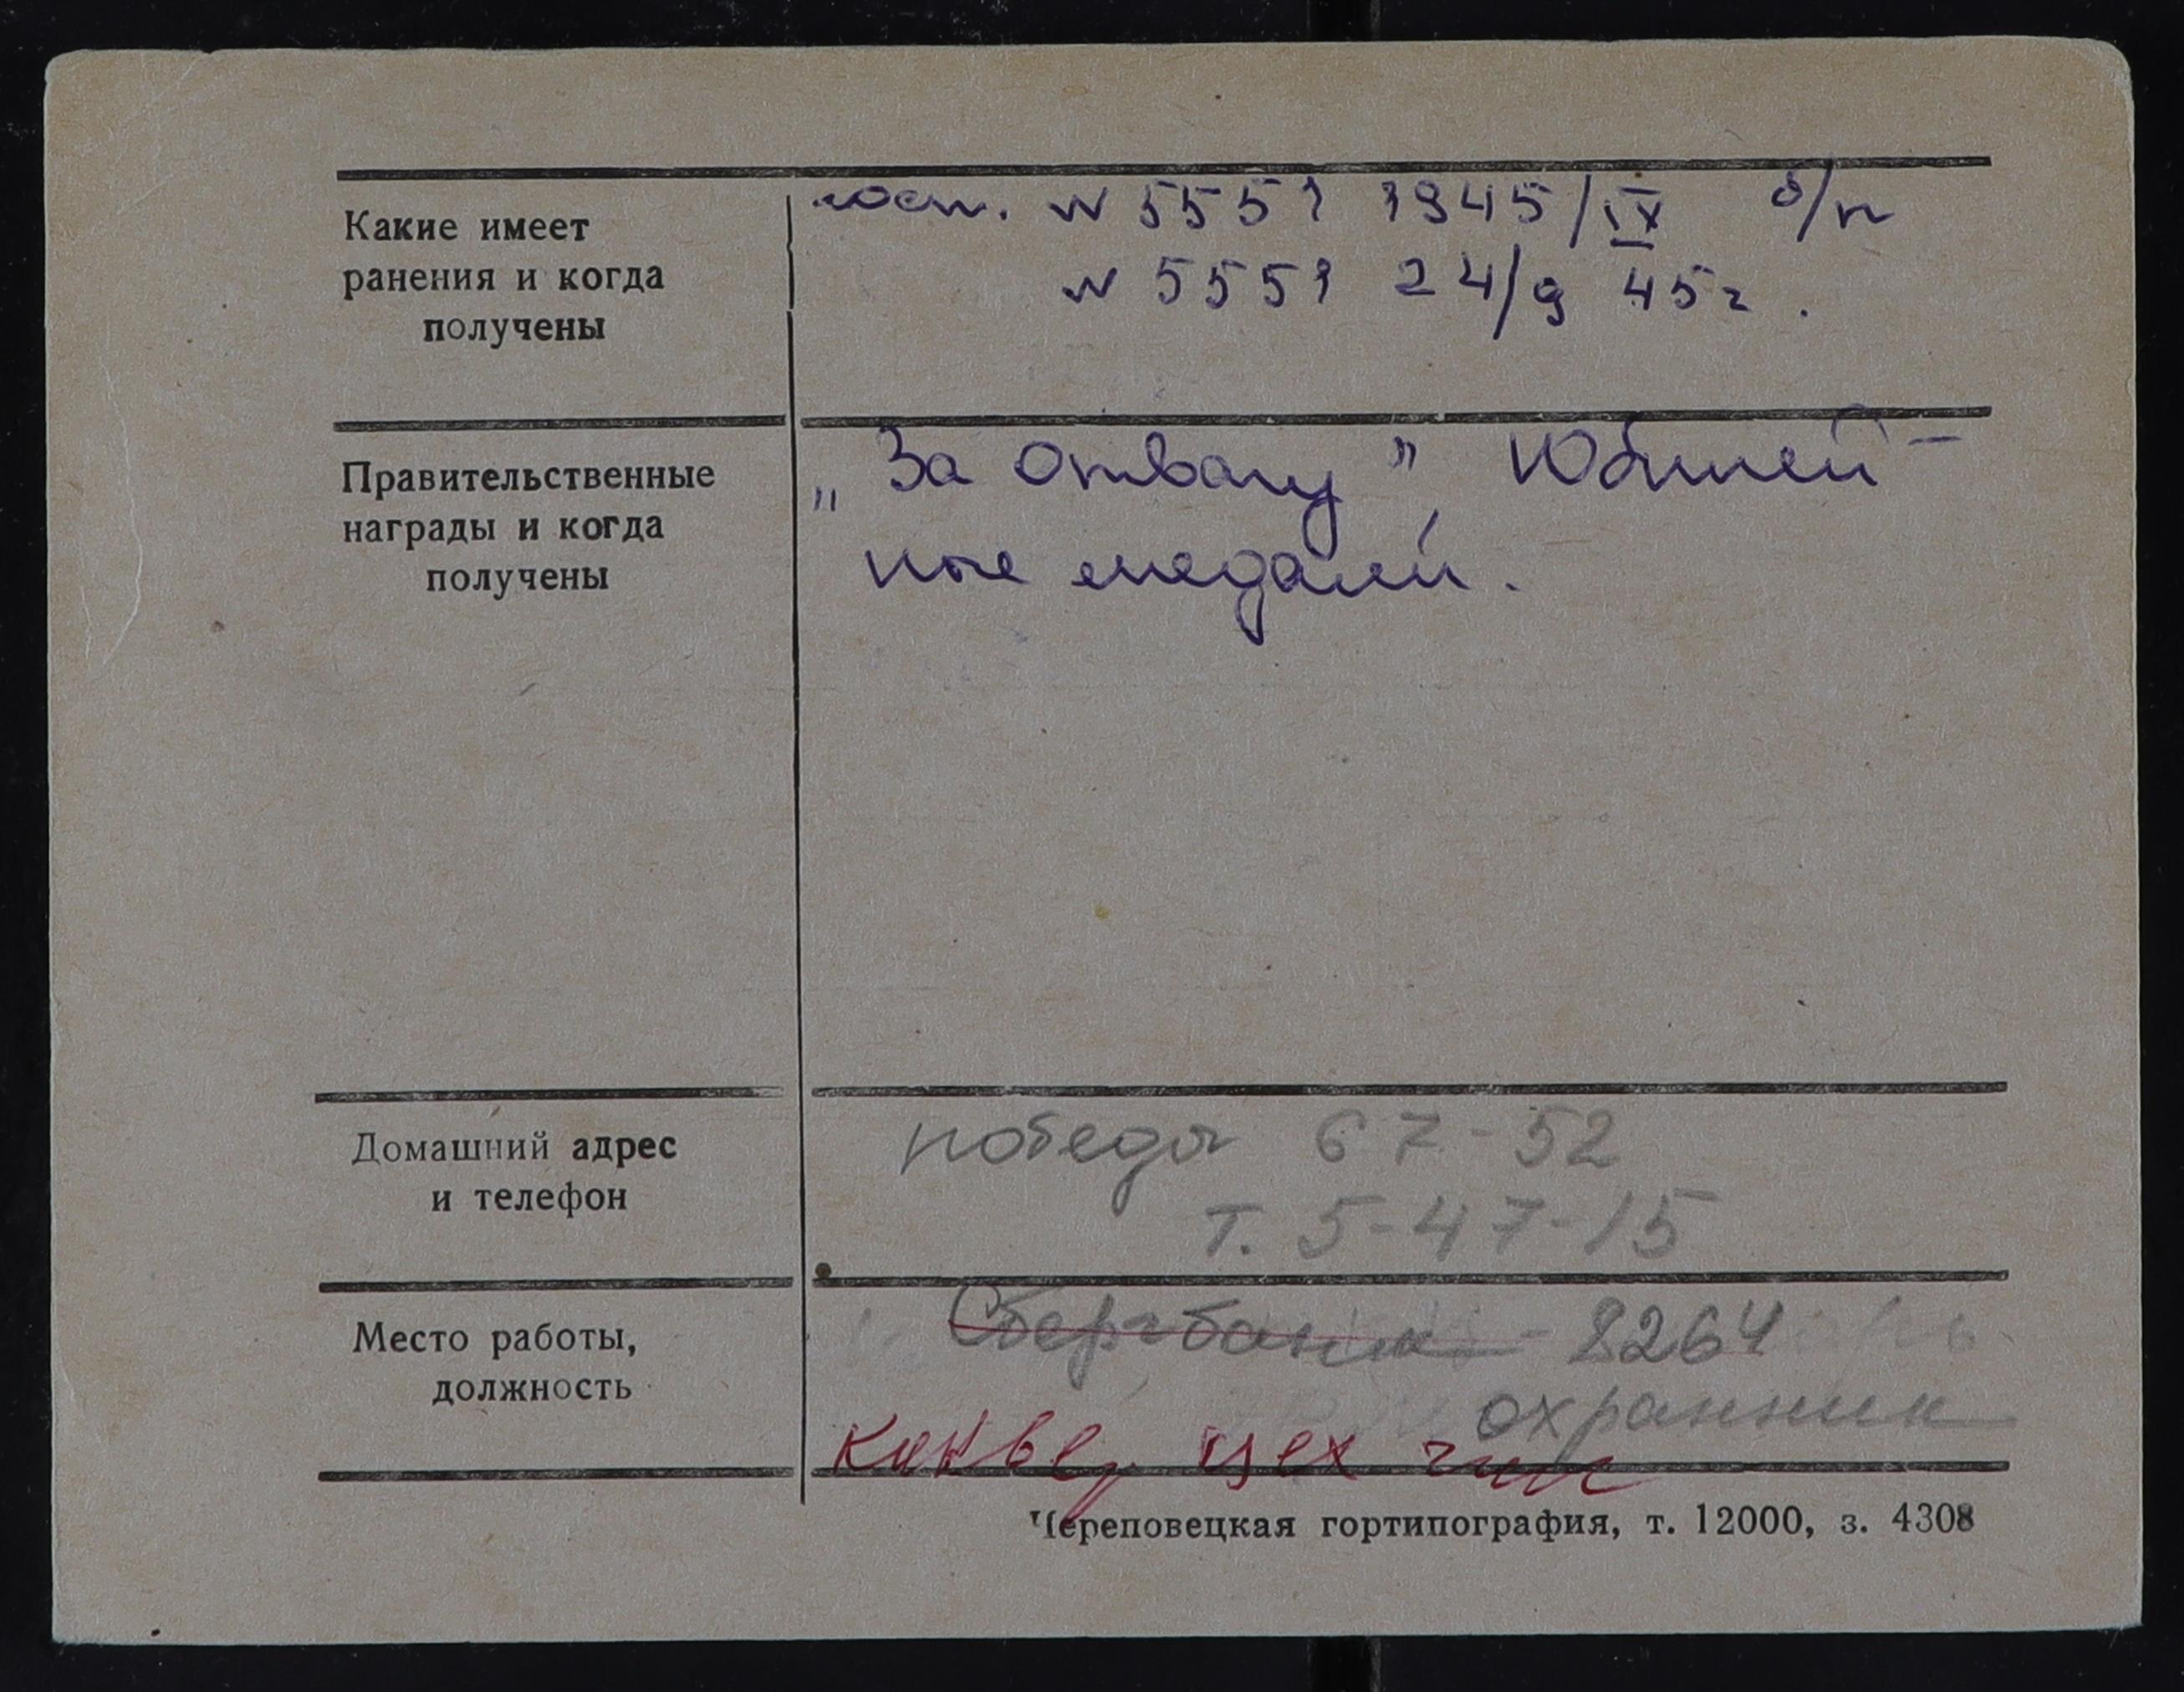 Какие имеет
ранения и когда
получены
госп. N 5551 1945/IX б/п
N 5551 24/9 45г.
Правительственные
награды и когда
получены
„За отвагу” Юбилей-
ные медали.
Домашний адрес
и телефон
победы 67-52
т. 5-47-15
Место работы,
должность
Сбергбанк - 8264
охранник
цех
Череповецкая гортипография, т. 12000, з. 4308